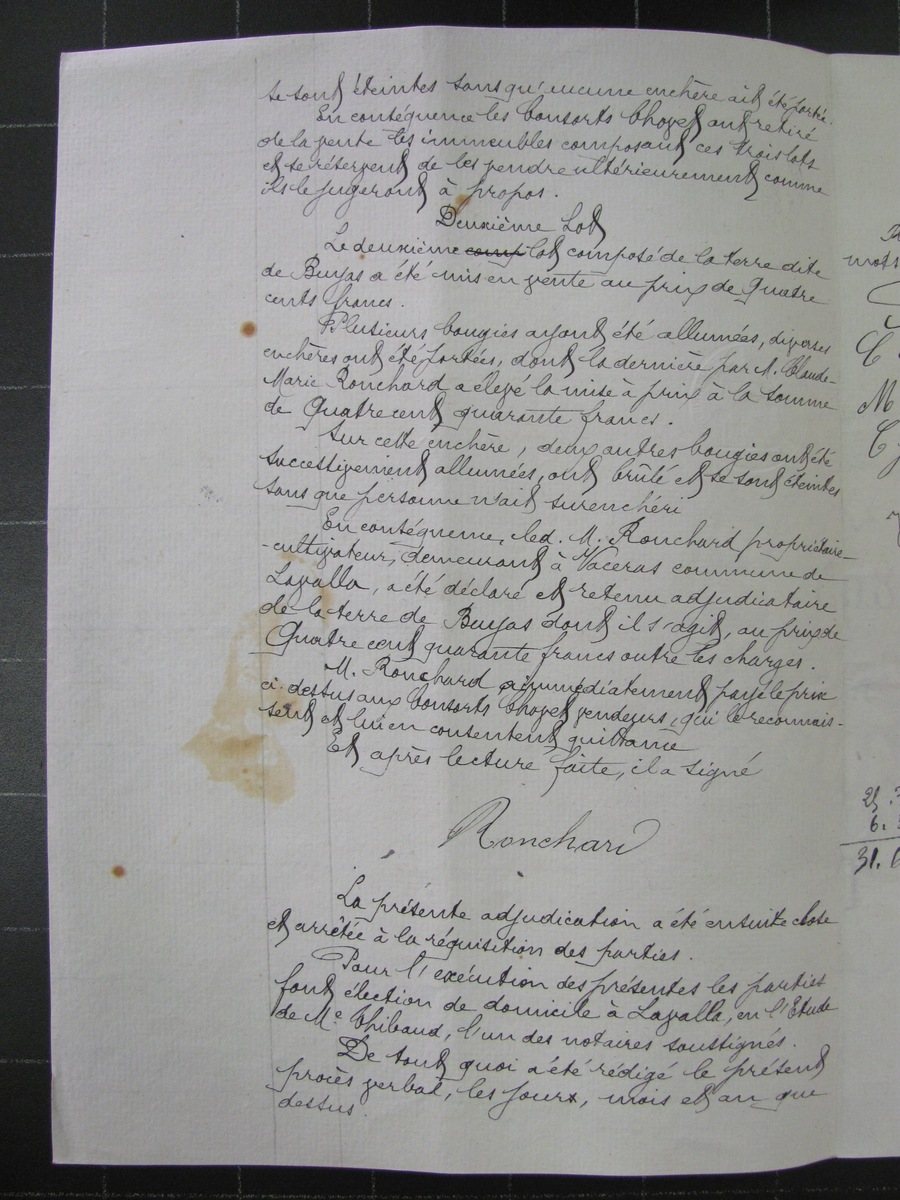 se sont éteintes sans qu'aucune enchère ait été portée.
En conséquence les consorts Choyet ont retiré
de la vente les immeubles composant ces trois lots
et se réservent de les vendre ultérieurement comme
ils le jugeront à propos.
Deuxième Lot
Le deuxième comp lot composé de la terre dite
de Buyas a été mis en vente au prix de Quatre
cents francs.
Plusieurs bougies ayant été allumées, diverses
enchères ont été portées, dont la dernière par M. Claude-
Marie Ronchard a élevé la mise à prix à la somme
de Quatre cent quarante francs.
Sur cette enchère, deux autres bougies ont été
successivement allumées, ont brûlé et se sont éteintes
sans que personne n'ait surenchéri
En conséquence, led. M. Ronchard propriétaire-
-cultivateur, demeurant à Vaceras commune de
Lavalla, a été déclaré et retenu adjudicataire
de la terre de Buyas dont il s'agit, au prix de
Quatre cent quarante francs outre les charges.
M. Ronchard a immédiatement payé le prix
ci-dessus aux consorts Choyet vendeurs, qui le reconnais-
sent et lui en consentent quittance
Et après lecture faite, il a signé
Ronchard
La présente adjudication a été ensuite close
et arrêtée à la réquisition des parties.
Pour l'exécution des présentes les parties
font élection de domicile à Lavalla, en l'Etude
de Me Thibaud, l'un des notaires soussignés.
De tout quoi a été rédigé le présent
procès verbal, les jours, mois et an que
dessus.
mots
M
31.